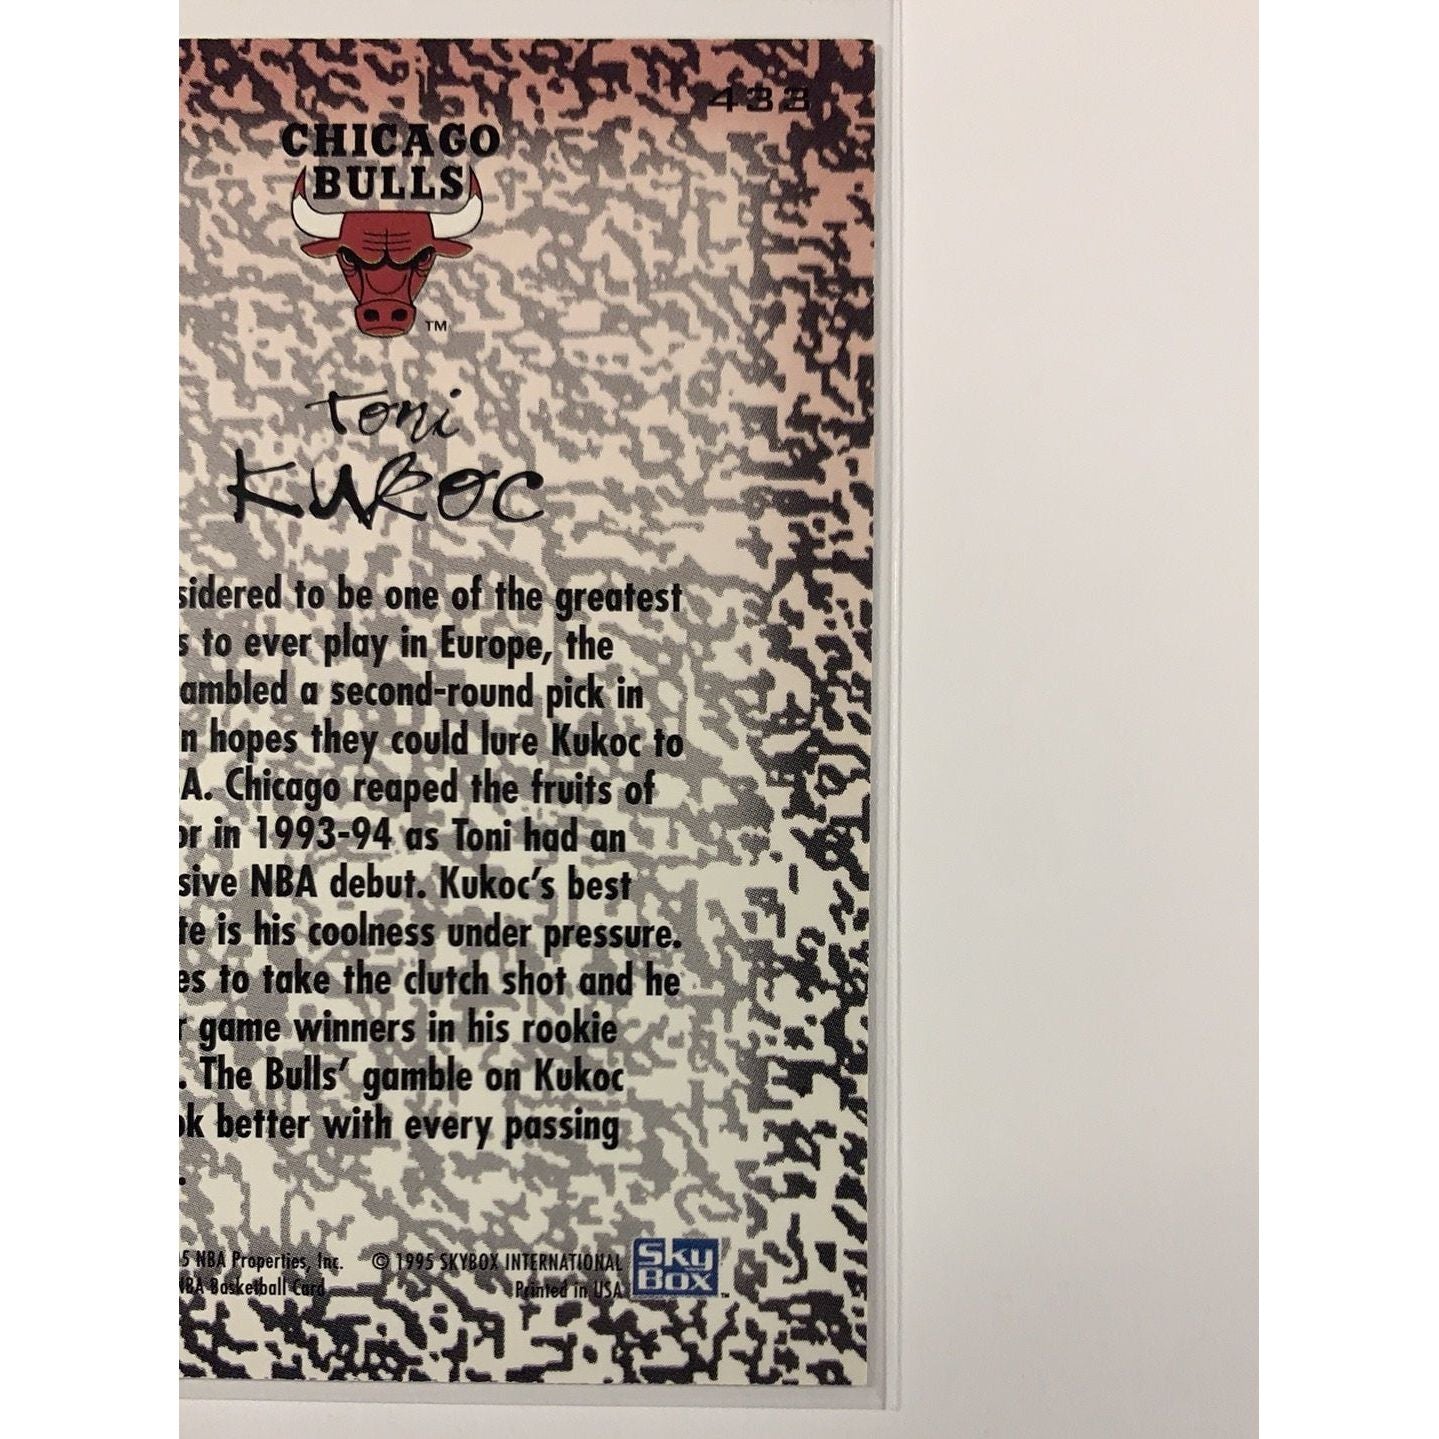 433
CHICAGO
BULLS
TM
Toni
KUKOC
sidered to be one of the greatest
s to ever play in Europe, the
ambled a second-round pick in
n hopes they could lure Kukoc to
A. Chicago reaped the fruits of
or in 1993-94 as Toni had an
sive NBA debut. Kukoc's best
te is his coolness under pressure.
es to take the clutch shot and he
r game winners in his rookie
. The Bulls' gamble on Kukoc
ok better with every passing
.
5 NBA Properties, Inc. © 1995 SKYBOX INTERNATIONAL
NBA Basketball Card Printed in USA
Sky
Box
TM